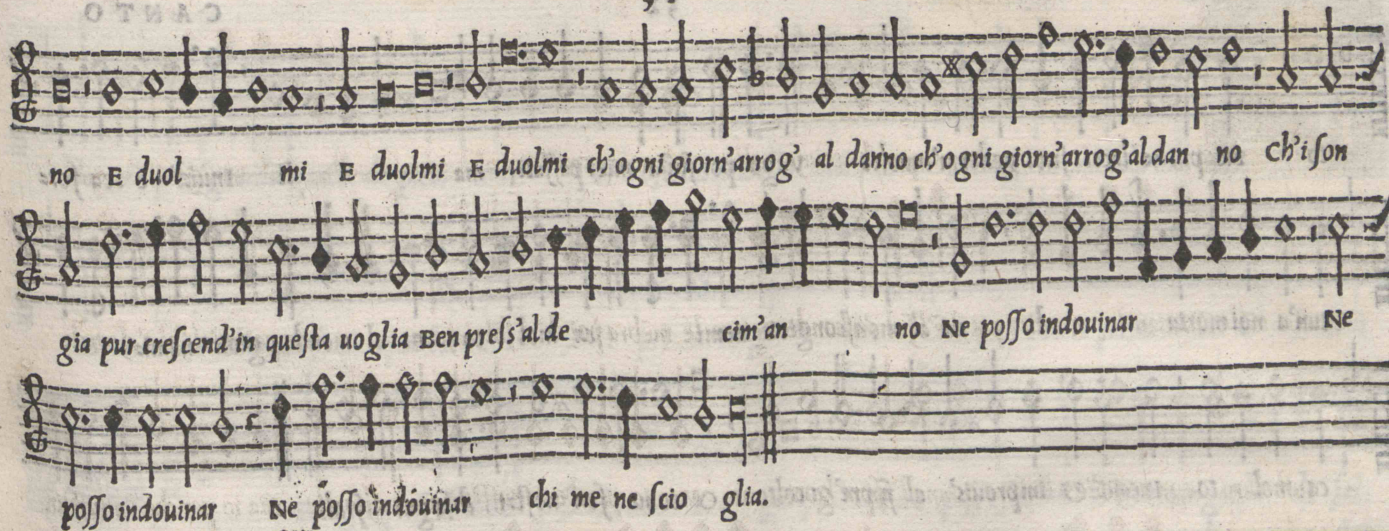 no E duol mi E duolmi E duolmi ch'ogni giorn'arrog' al danno ch'ogni giorn'arrog'al dan no Ch'i ſon
gia pur creſcend'in queſta uoglia Ben preſs'al de cim'an no Ne poſſo indouinar Ne
poſſo indouinar Ne poſſo indouinar chi me ne ſcio glia.